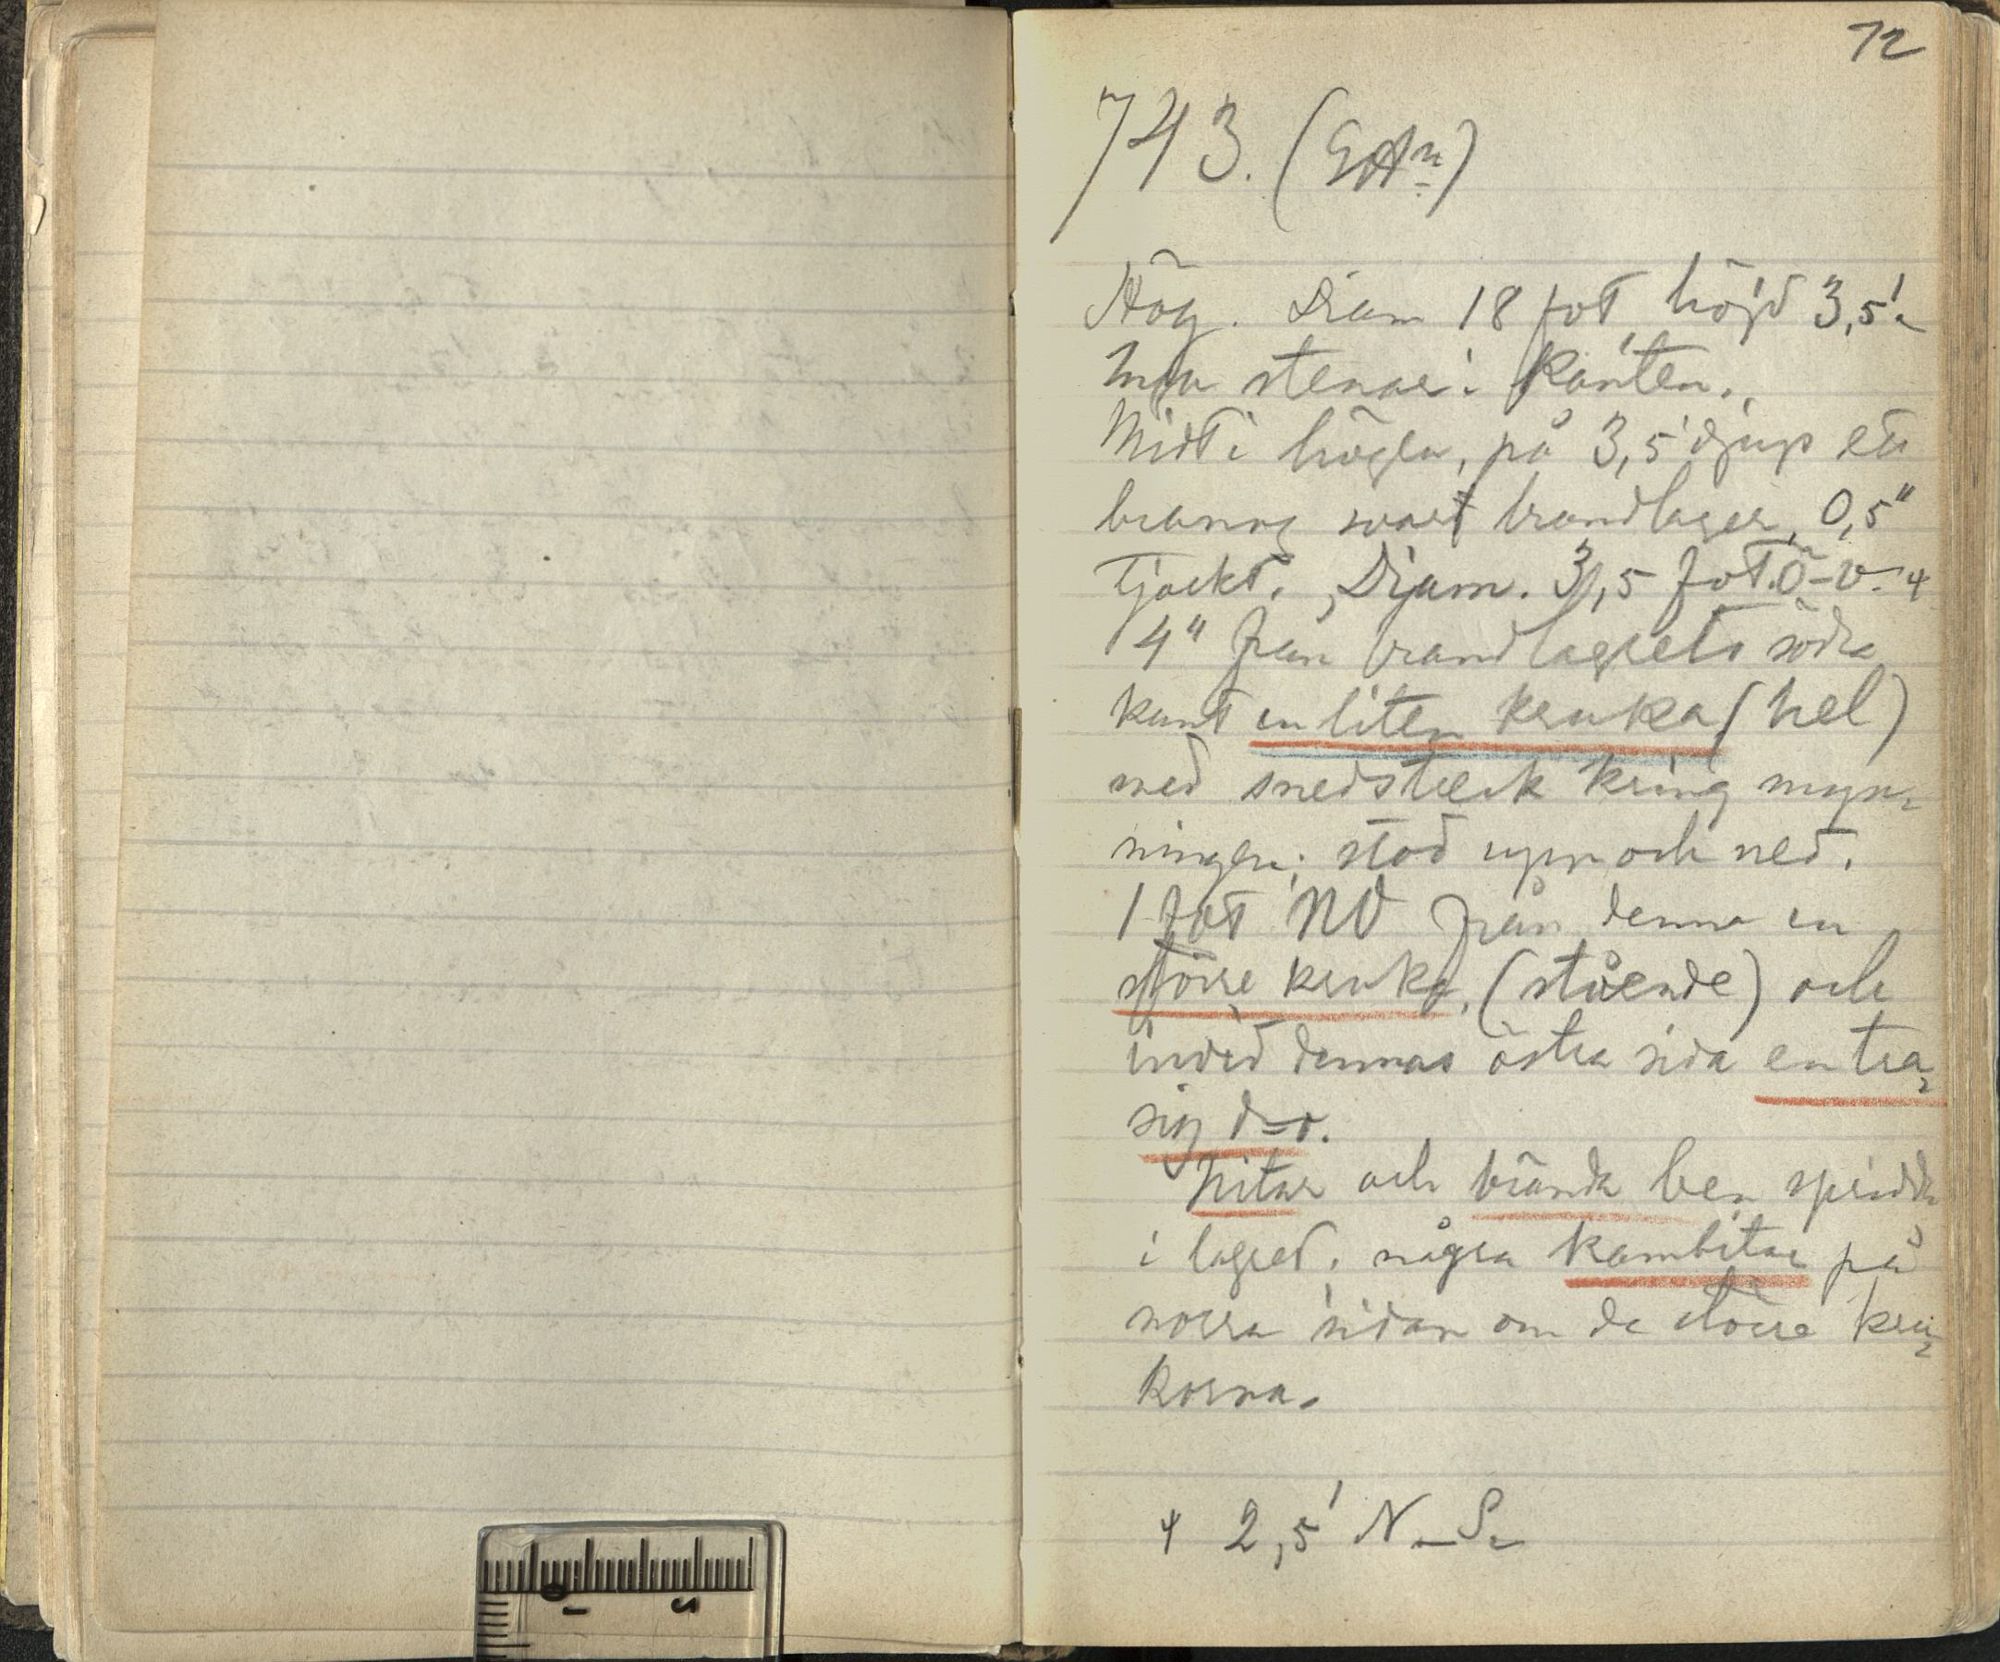 72
743. (GAn)
Hög. Diam 18 fot, höjd 3,5'.
Inga stenar i kanten.
Midt i högen, på 3,5' djup ett
kolmörg svart brandlager, 0,5"
tjockt. Djam. 3,5 fot. Ö-V. +
4" från brandlagrets södra
kant en liten kruka (hel)
med snedstreck kring myn-
ningen; stod upp och ned.
1 fot NO från denna en
större kruka, (stående) och
invid dennas östra sida en tra-
sig d-o.
Nitar och brända ben spridda
i lagret, några kambitar på
norra sidan om de större kru-
korna.
+ 2,5' N-S.